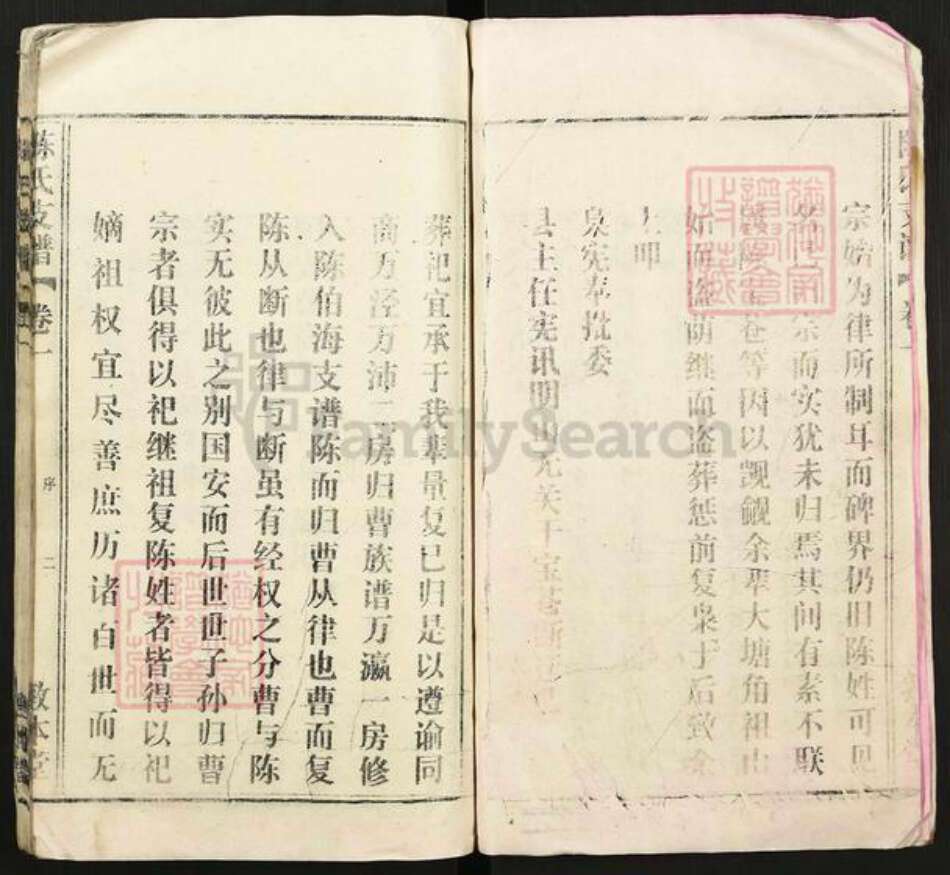 宗嫡为律所制耳而碑界仍旧陈姓可见
宗而实犹未归焉其间有素不联
卷等因以觊觎余辈大塘角祖山
妒而盗荫继而盗葬惩前复枭于后致余
上叩
臬宪奉批委
县主任宪讯明
葬祀宜承于我辈量复已归是以遵谕同
商万泾万沛二房归曹族谱万瀛一房修
入陈伯海支谱陈而归曹从律也曹而复
陈从断也律与断虽有经权之分曹与陈
实无彼此之别国安而后世世子孙归曹
宗者俱得以祀继祖复陈姓者皆得以祀
嫡祖权宜尽善庶历诸百世而无
陈氏支谱
卷一
序
二
敦本堂
FamilySearch